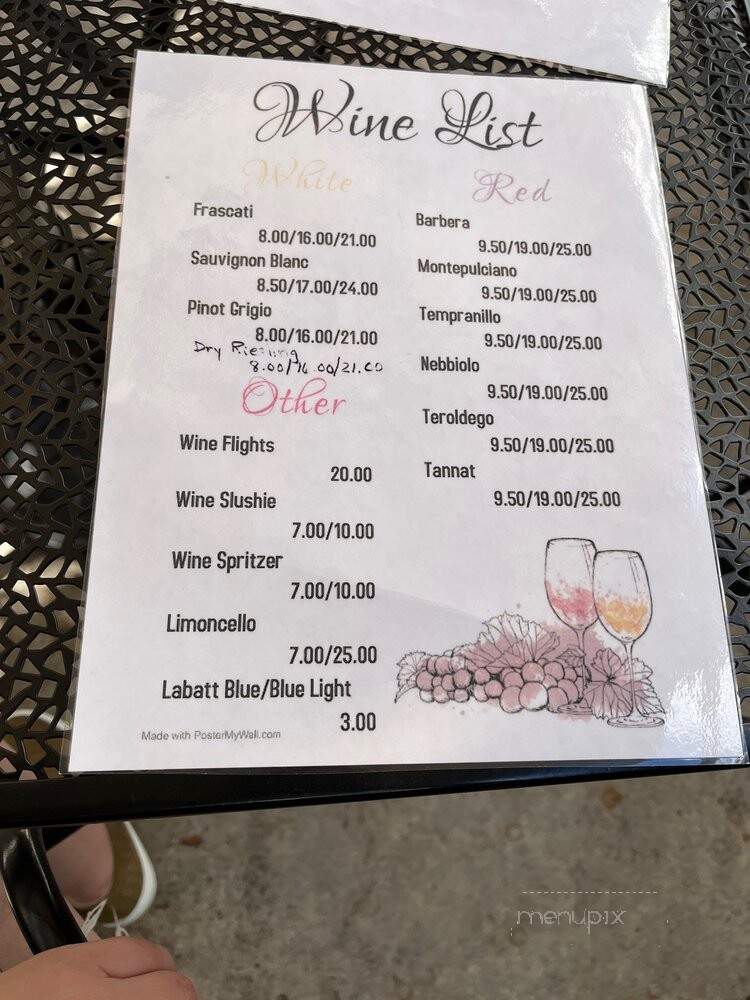 Wine List
White
Frascati
8.00/16.00/21.00
Sauvignon Blanc
8.50/17.00/24.00
Pinot Grigio
8.00/16.00/21.00
Dry Riesling
8.00/16.00/21.00
Other
Wine Flights
20.00
Wine Slushie
7.00/10.00
Wine Spritzer
7.00/10.00
Limoncello
7.00/25.00
Labatt Blue/Blue Light
3.00
Made with PosterMyWall.com
Red
Barbera
9.50/19.00/25.00
Montepulciano
9.50/19.00/25.00
Tempranillo
9.50/19.00/25.00
Nebbiolo
9.50/19.00/25.00
Teroldego
9.50/19.00/25.00
Tannat
9.50/19.00/25.00
menupix